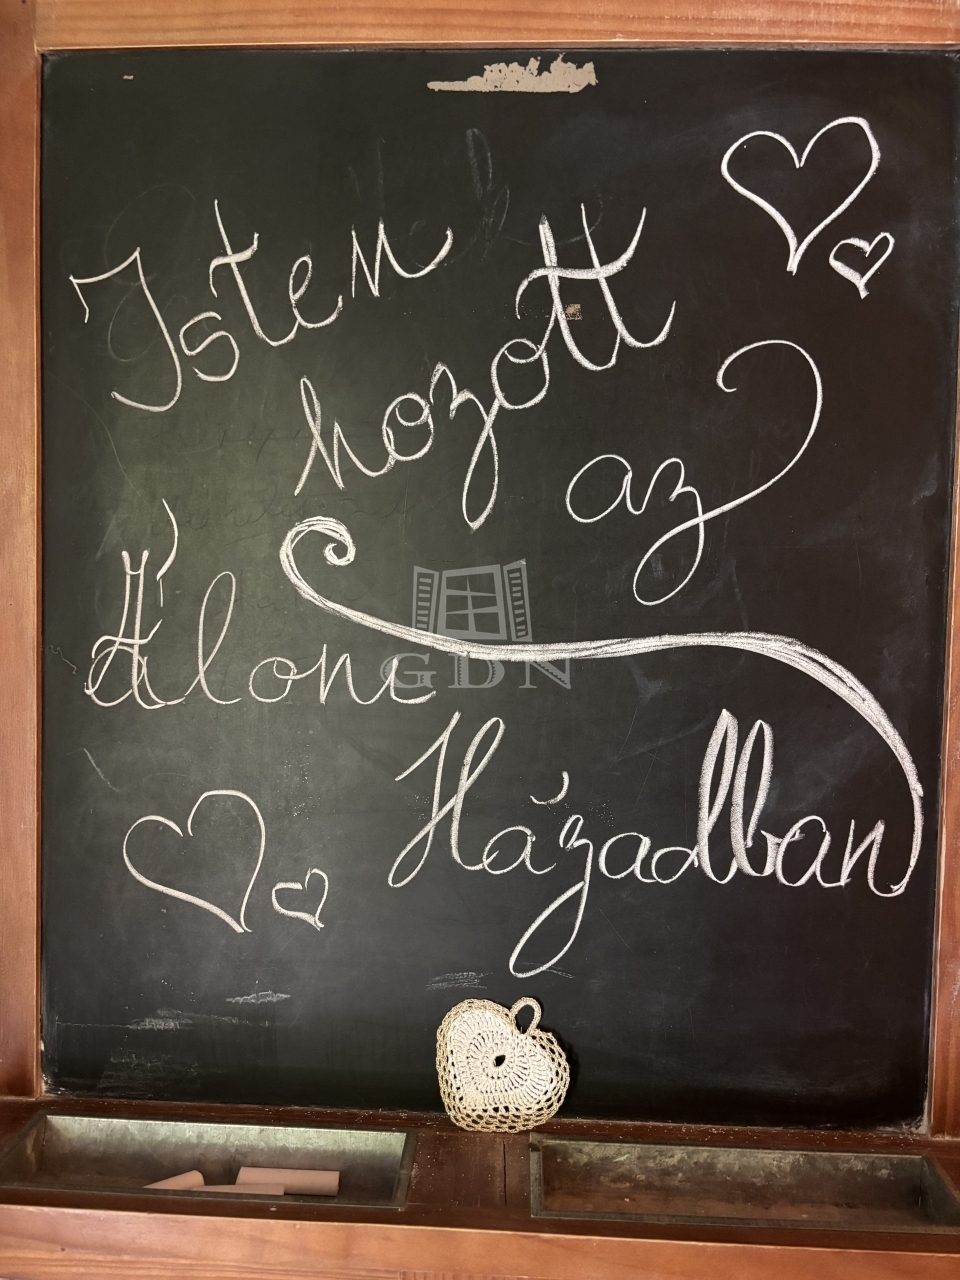 Isten
hozott
az
Álom
Házadban
GDN